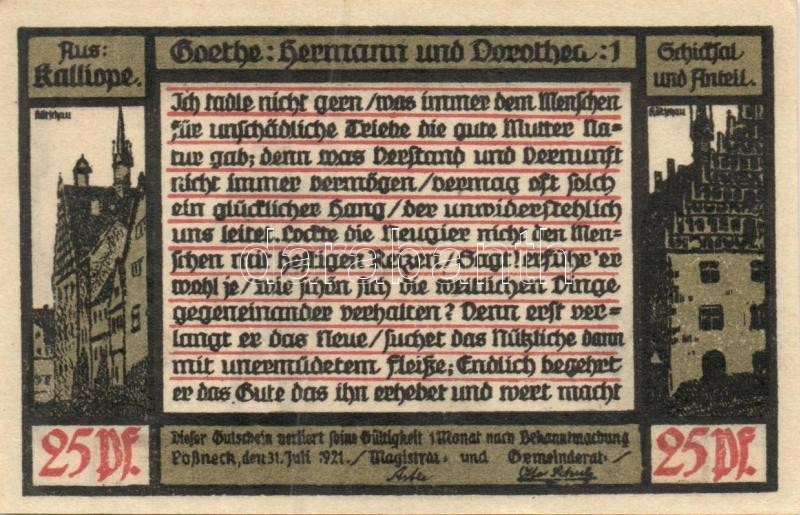 Aus:
Kalliope.
Goethe: Hermann und Dorothea: 1
Schicksal
und Anteil.
Kötschau
Kötschau
Ich tadle nicht gern/was immer dem Menschen
für unschädliche Triebe die gute Mutter Na=
tur gab; denn was Verstand und Vernunft
nicht immer vermögen/vermag oft solch
ein glücklicher Hang/der unwiderstehlich
uns leitet. Lockte die Neugier nicht den Men=
schen mit heftigen Reizen/Sagt! erführ' er
wohl je/wie schön sich die weltlichen Dinge
gegeneinander verhalten? Denn erst ver=
langt er das Neue/suchet das Nützliche dann
mit unermüdetem Fleiße; Endlich begehrt
er das Gute das ihn erhebet und wert macht
darabanth
25 Pf.
Dieser Gutschein verliert seine Gültigkeit 1 Monat nach Bekanntmachung
Pößneck, den 31. Juli 1921./Magistrat= und Gemeinderat=/
25 Pf.